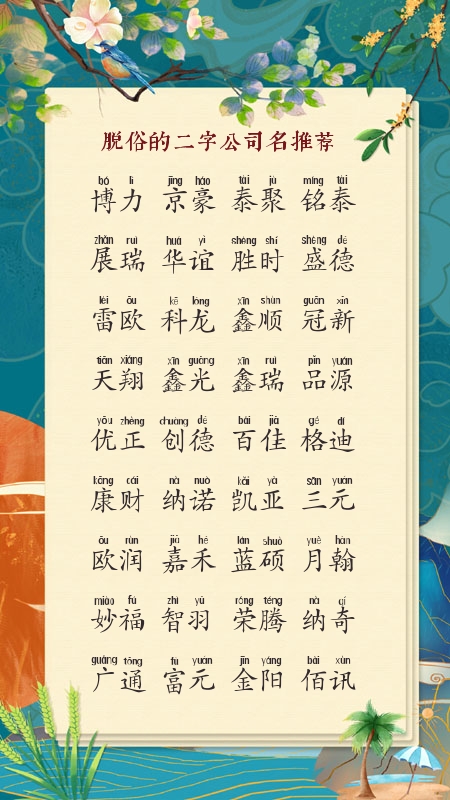 脱俗的二字公司名推荐
bó lì jīng háo tài jù míng tài
博力 京豪 泰聚 铭泰
zhǎn ruì huá yì shèng shí shèng dé
展瑞 华谊 胜时 盛德
léi ōu kē lóng xīn shùn guān xīn
雷欧 科龙 鑫顺 冠新
tiān xiáng xīn guāng xīn ruì pǐn yuán
天翔 鑫光 鑫瑞 品源
yōu zhèng chuàng dé bǎi jiā gé dí
优正 创德 百佳 格迪
kāng cái nà nuò kǎi yà sān yuán
康财 纳诺 凯亚 三元
ōu rùn jiā hé lán shuò yuè hàn
欧润 嘉禾 蓝硕 月翰
miào fú zhì yǔ róng téng nà qí
妙福 智羽 荣腾 纳奇
guǎng tōng fù yuán jīn yáng bǎi xùn
广通 富元 金阳 佰讯